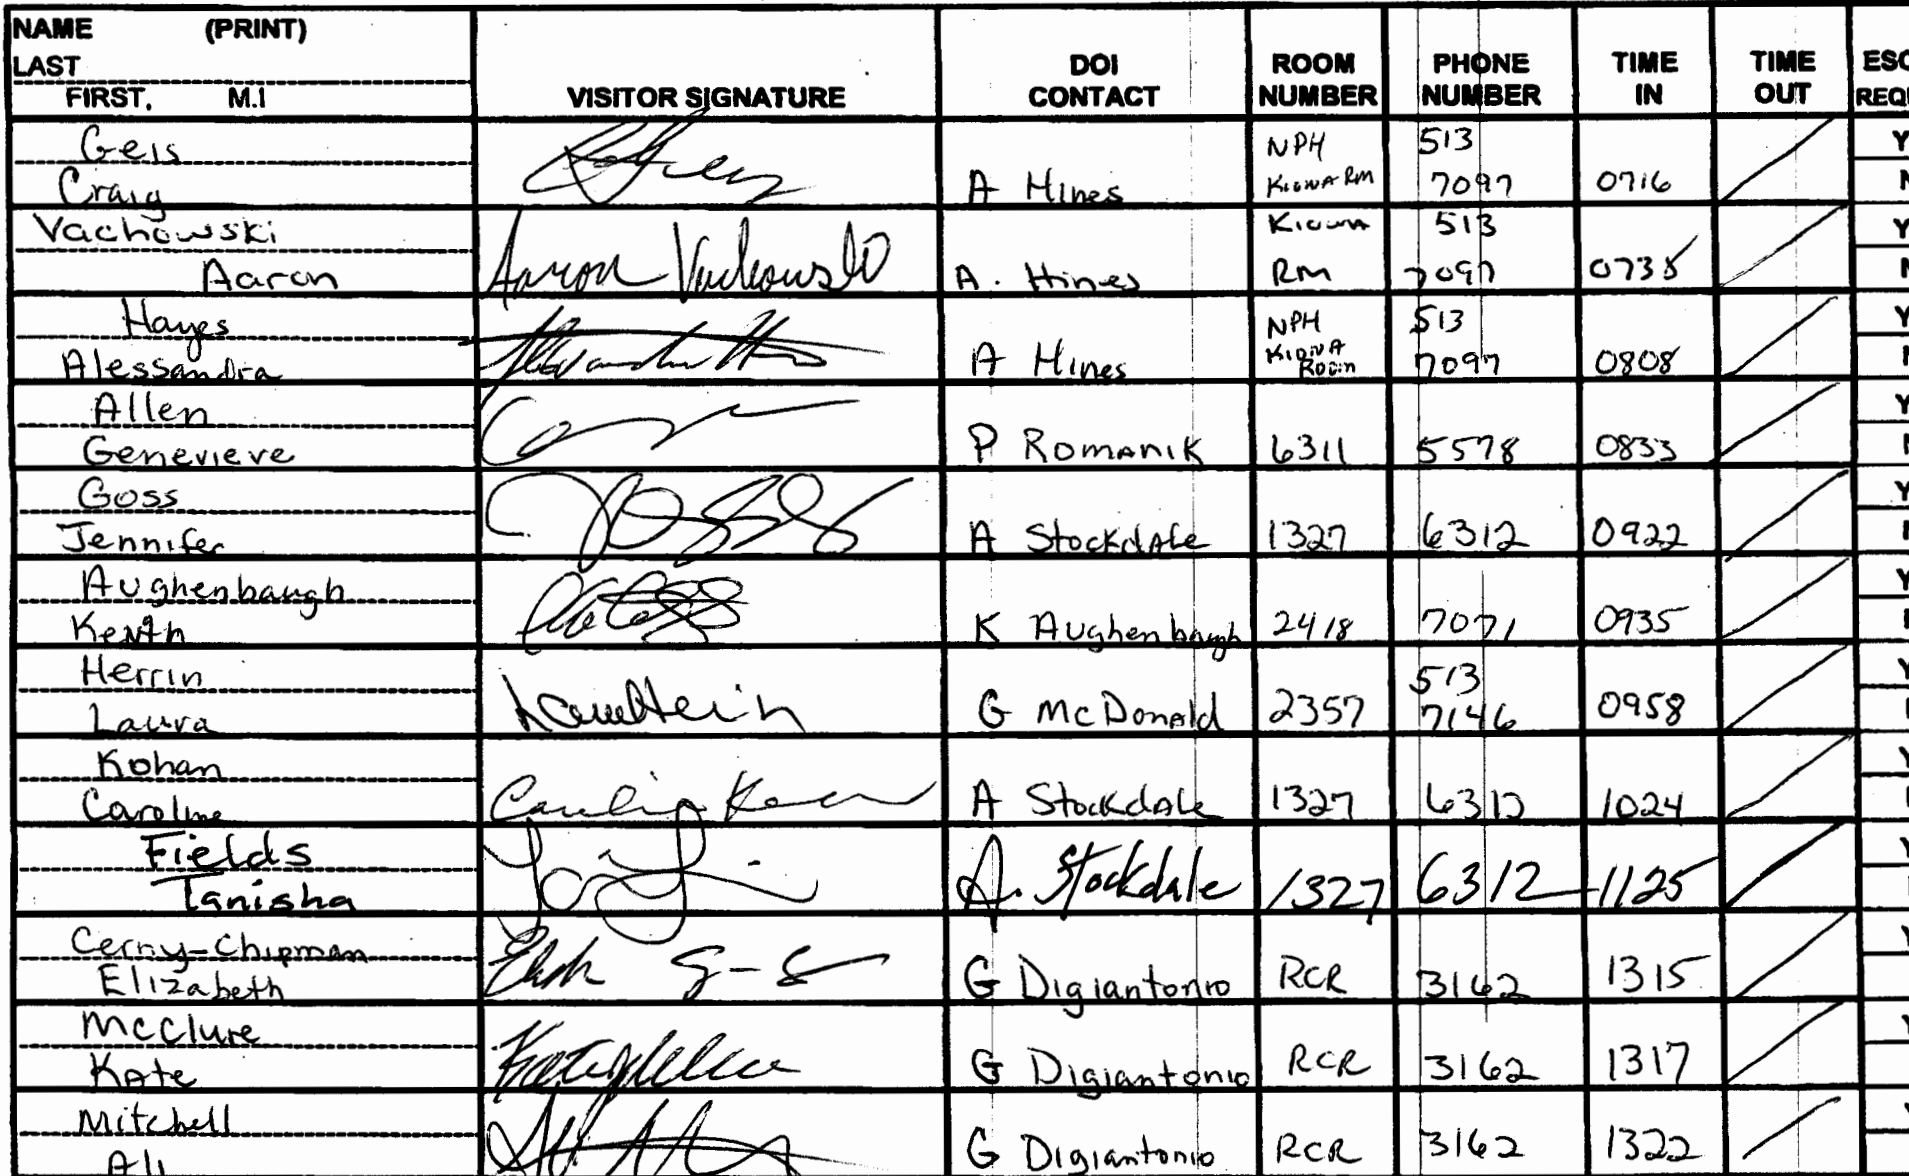 NAME (PRINT)
LAST
FIRST, M.I
VISITOR SIGNATURE
DOI CONTACT
ROOM NUMBER
PHONE NUMBER
TIME IN
TIME OUT
Geis
Craig
A Hines
NPH
KIOWA RM
513
7097
0716
Y
Vachowski
Aaron
Aaron Vachowski
A. Hines
KIOWA
RM
513
7097
0735
Y
Hayes
Alessandra
A Hines
NPH
KIOWA
Room
513
7097
0808
Y
Allen
Genevieve
P Romanik
6311
5578
0833
Y
Goss
Jennifer
A Stockdale
1327
6312
0922
Y
Aughenbaugh
Keith
K Aughenbaugh
2418
7071
0935
Y
Herrin
Laura
G McDonald
2357
513
7146
0958
Kohan
Caroline
A Stockdale
1327
6312
1024
Fields
Tanisha
A. Stockdale
1327
6312
1125
Cerny-Chipman
Elizabeth
G Digiantonio
RCR
3162
1315
McClure
Kate
G Digiantonio
RCR
3162
1317
Mitchell
Ali
G Digiantonio
RCR
3162
1322